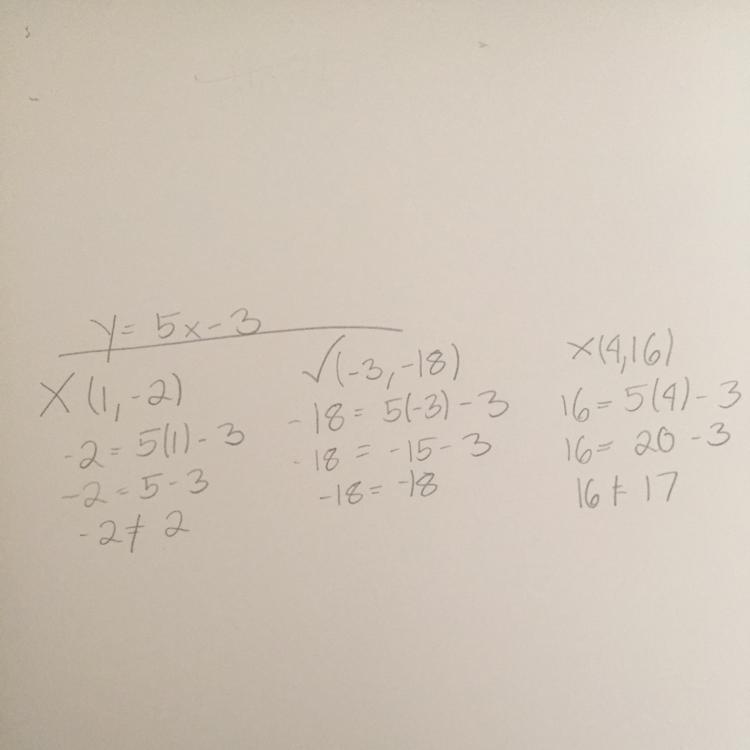 y = 5x - 3
X (1, -2)
-2 = 5(1) - 3
-2 = 5 - 3
-2 ≠ 2
√(-3, -18)
-18 = 5(-3) - 3
-18 = -15 - 3
-18 = -18
X (4, 16)
16 = 5(4) - 3
16 = 20 - 3
16 ≠ 17